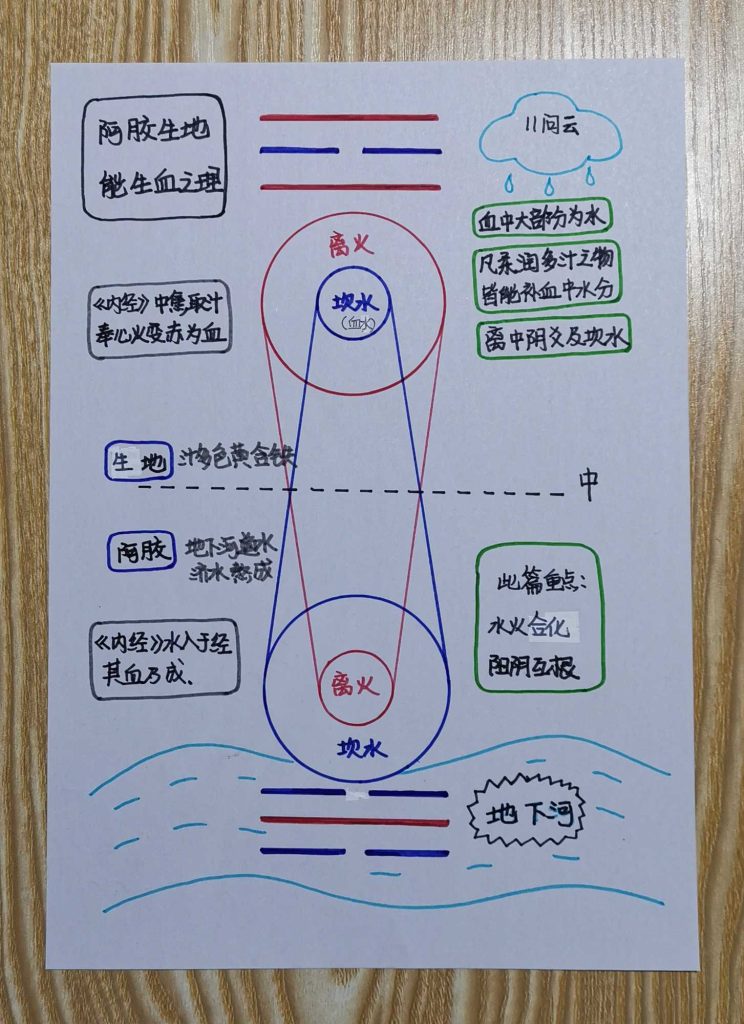 阿胶生地
能生血之理
问云
血中大部分为水
凡柔润多汁之物
皆能补血中水分
离中阴爻及坎水
离火
坎水
(血水)
《内经》中焦取汁
奉心火变赤为血
生地
汁多色黄含铁
中
阿胶
地下河道水
济水熬成
《内经》水入于经
其血乃成.
此篇重点:
水火合化
阳阴互根
离火
坎水
地下河